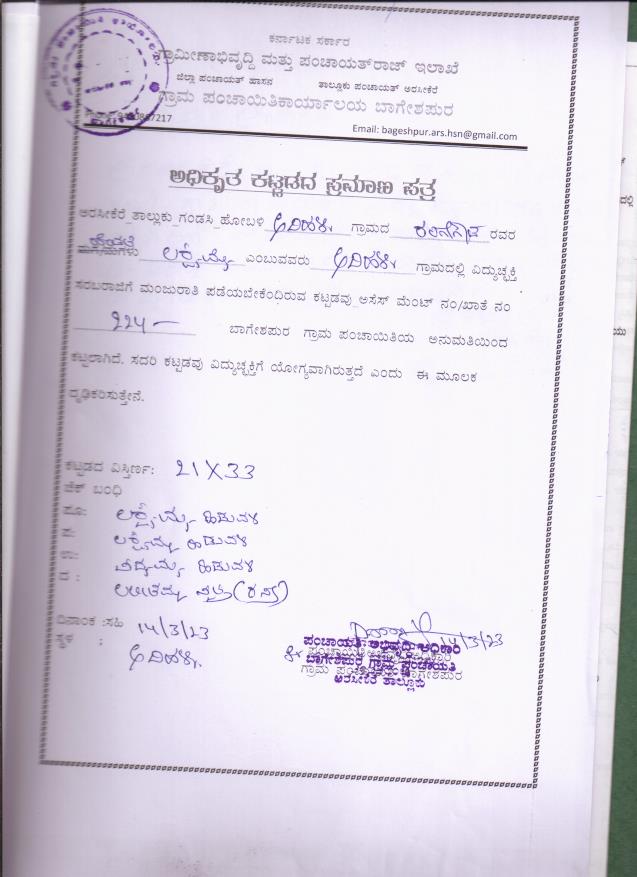 ಕರ್ನಾಟಕ ಸರ್ಕಾರ
ಗ್ರಾಮೀಣಾಭಿವೃದ್ಧಿ ಮತ್ತು ಪಂಚಾಯತ್‌ರಾಜ್ ಇಲಾಖೆ
ಜಿಲ್ಲಾ ಪಂಚಾಯತ್ ಹಾಸನ ತಾಲ್ಲೂಕು ಪಂಚಾಯತ್ ಅರಸೀಕೆರೆ
ಗ್ರಾಮ ಪಂಚಾಯಿತಿಕಾರ್ಯಾಲಯ ಬಾಗೇಶಪುರ
Email: bageshpur.ars.hsn@gmail.com
ಅಧಿಕೃತ ಕಟ್ಟಡದ ಪ್ರಮಾಣ ಪತ್ರ
ಅರಸೀಕೆರೆ ತಾಲ್ಲೂಕು ಗಂಡಸಿ ಹೋಬಳಿ ಗ್ರಾಮದ ರವರ
ಲಕ್ಷ್ಮಮ್ಮ ಎಂಬುವವರು ಗ್ರಾಮದಲ್ಲಿ ವಿದ್ಯುಚ್ಛಕ್ತಿ
ಸರಬರಾಜಿಗೆ ಮಂಜುರಾತಿ ಪಡೆಯಬೇಕೆಂದಿರುವ ಕಟ್ಟಡವು ಅಸೆಸ್ ಮೆಂಟ್ ನಂ/ಖಾತೆ ನಂ
224 ಬಾಗೇಶಪುರ ಗ್ರಾಮ ಪಂಚಾಯಿತಿಯ ಅನುಮತಿಯಿಂದ
ಕಟ್ಟಲಾಗಿದೆ. ಸದರಿ ಕಟ್ಟಡವು ವಿದ್ಯುಚ್ಛಕ್ತಿಗೆ ಯೋಗ್ಯವಾಗಿರುತ್ತದೆ ಎಂದು ಈ ಮೂಲಕ
ದೃಢಿಕರಿಸುತ್ತೇನೆ.
ಕಟ್ಟಡದ ವಿಸ್ತೀರ್ಣ: 21X33
ಚೆಕ್ ಬಂಧಿ
ಪೂ: ಲಕ್ಷ್ಮಮ್ಮ ಹಿಡುವಳಿ
ಪ: ಲಕ್ಷ್ಮಮ್ಮ ಹಿಡುವಳಿ
ಉ: ಹಿಡುವಳಿ
ದ :
ದಿನಾಂಕ :ಸಹಿ 14/3/23
ಸ್ಥಳ :
14/3/23
ಪಂಚಾಯತಿ ಅಭಿವೃದ್ಧಿ ಅಧಿಕಾರಿ
ಬಾಗೇಶಪುರ ಗ್ರಾಮ ಪಂಚಾಯತಿ
ಅರಸೀಕೆರೆ ತಾಲ್ಲೂಕು